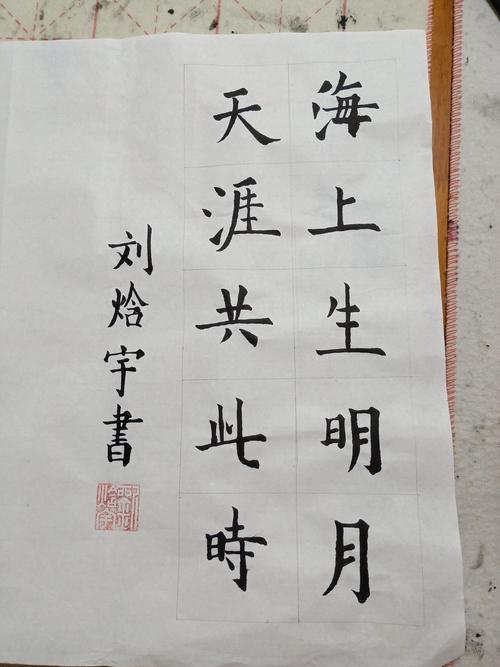 海上生明月
天涯共此時
刘焓宇書